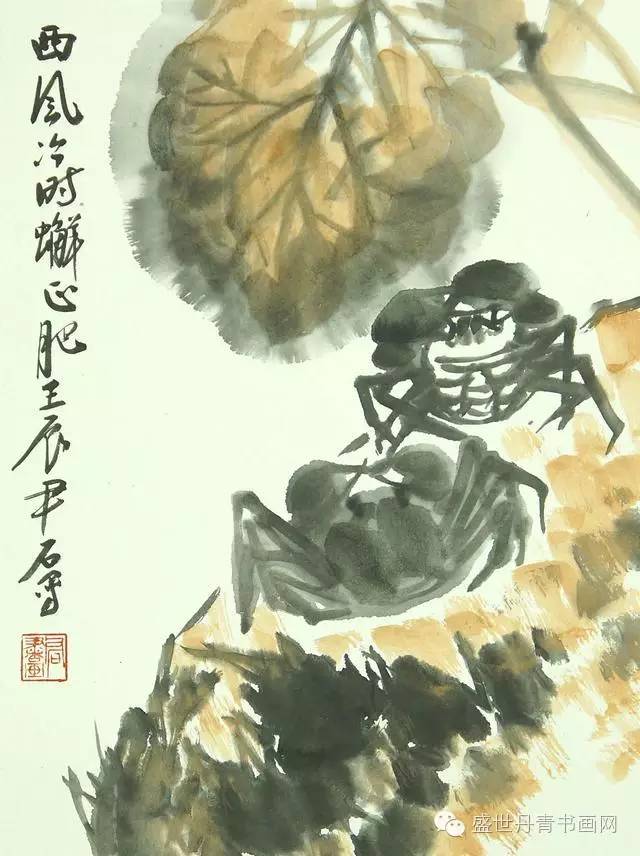 西风冷时蠏正肥壬辰尹石写
盛世丹青书画网